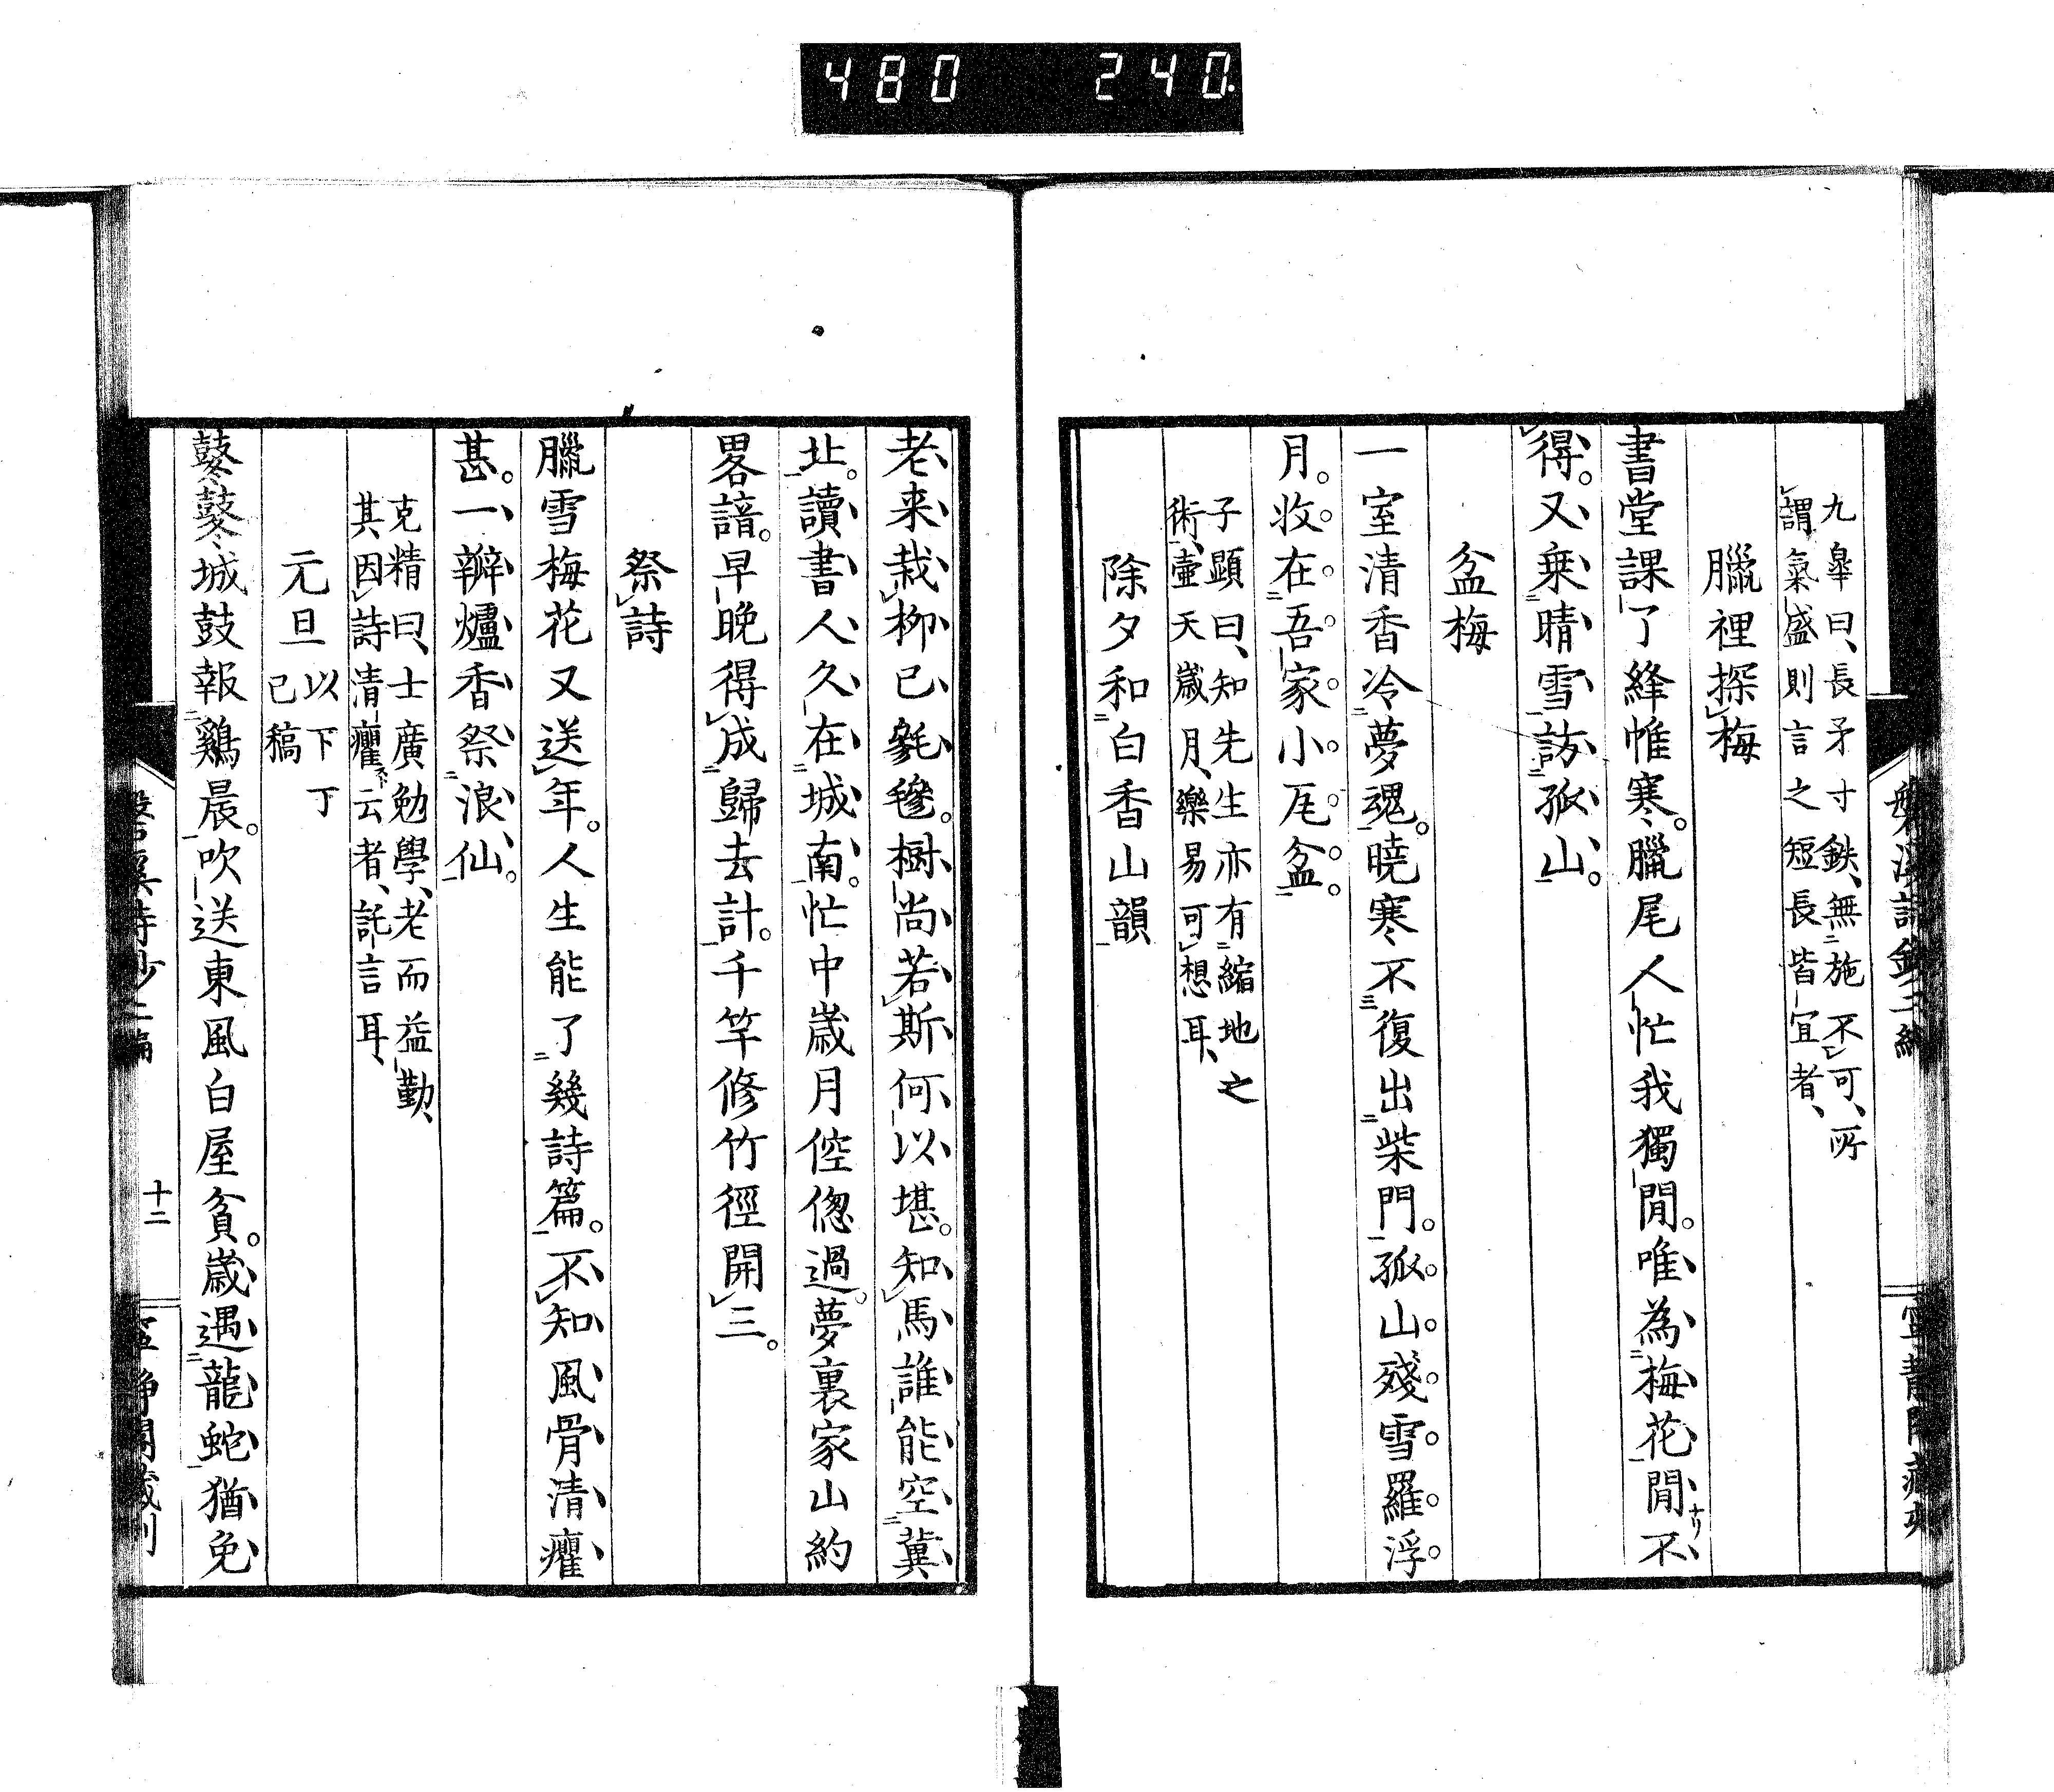 480 240
九皐曰、長矛寸鉄、無施不可、所
謂氣盛則言之短長皆宜者、
臘裡探梅
書堂課了絳帷寒。臘尾人忙我獨閒。唯為梅花閒不
得。又乗晴雪訪孤山。
盆梅
一室清香冷夢魂。曉寒不復出柴門。孤山殘雪羅浮
月。收在吾家小瓦盆。
子顕曰、知先生亦有縮地之
術、壷天歳月、樂易可想耳、
除夕和白香山韻
老来栽柳已毿毿。樹尚若斯何以堪。知馬誰能空冀
北。讀書人久在城南。忙中歳月倥偬過。夢裏家山約
畧諳。早晩得成歸去計。千竿修竹徑開三。
祭詩
臘雪梅花又送年。人生能了幾詩篇。不知風骨清癯
甚。一瓣爐香祭浪仙。
克精曰、士廣勉學、老而益勤、
其因詩清癯云者、託言耳、
元旦 以下丁
已稿
鼕鼕城鼓報鷄晨。吹送東風白屋貧。歳遇龍蛇猶免
十二